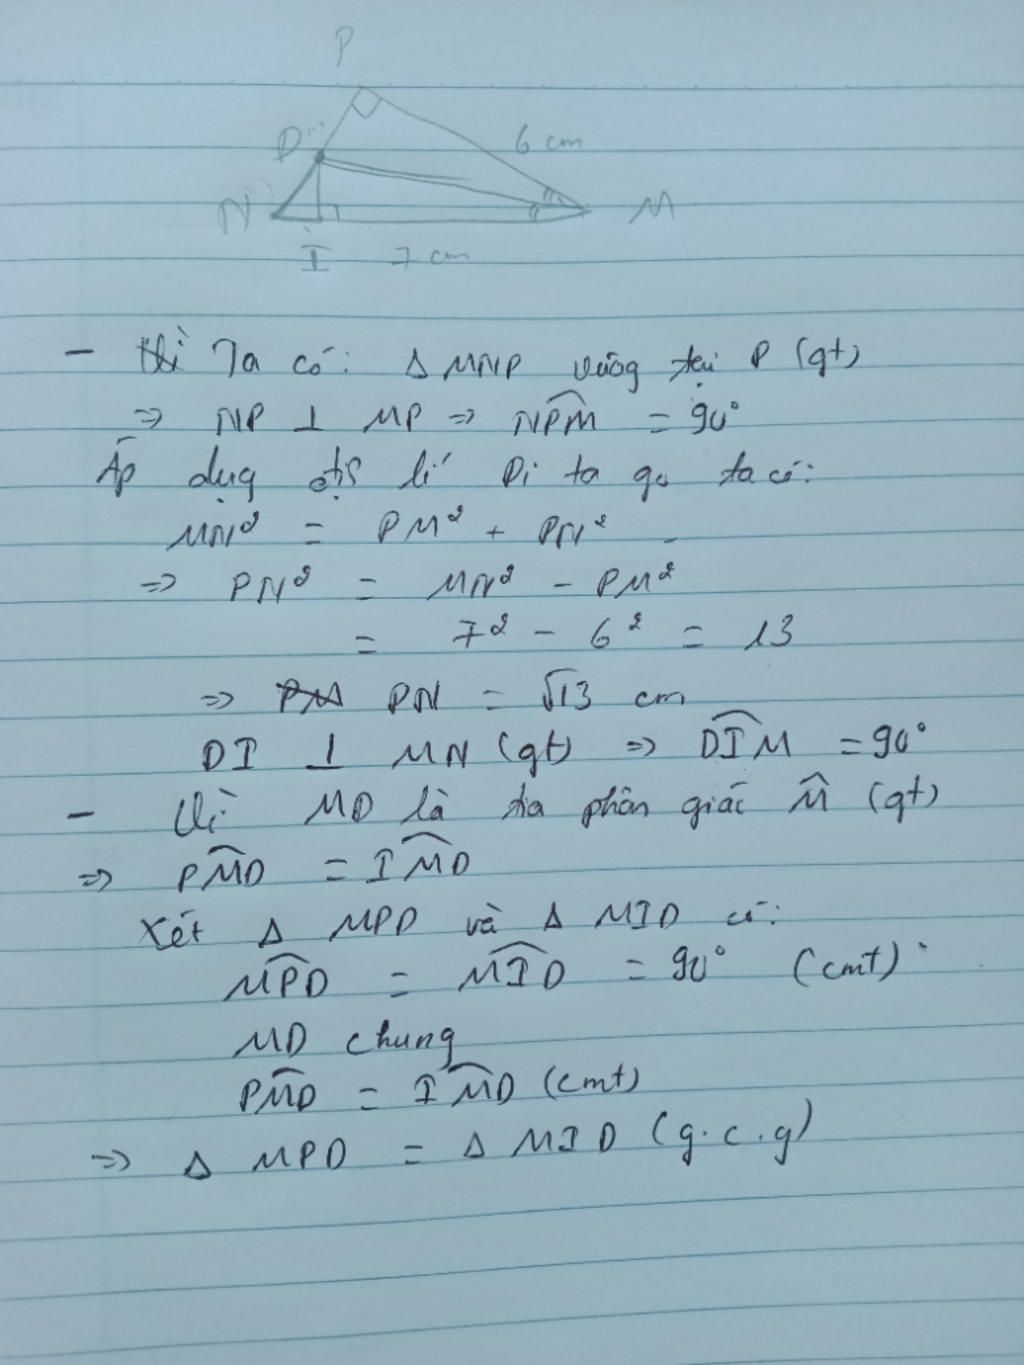 P
D
6 cm
N
M
I
7 cm
- Ta có: Δ MNP vuông tại P (gt)
=> NP ⊥ MP => NPM̂ = 90°
Áp dụng lí Pi ta go ta có:
MN² = PM² + PN²
=> PN² = MN² - PM²
= 7² - 6² = 13
=> PN = √13 cm
DI ⊥ MN (gt) => DÎM = 90°
- Vì MD là tia phân giác M̂ (gt)
=> PM̂D = IM̂D
Xét Δ MPD và Δ MID có:
MP̂D = MÎD = 90° (cmt)
MD chung
PM̂D = IM̂D (cmt)
=> Δ MPD = Δ MID (g.c.g)